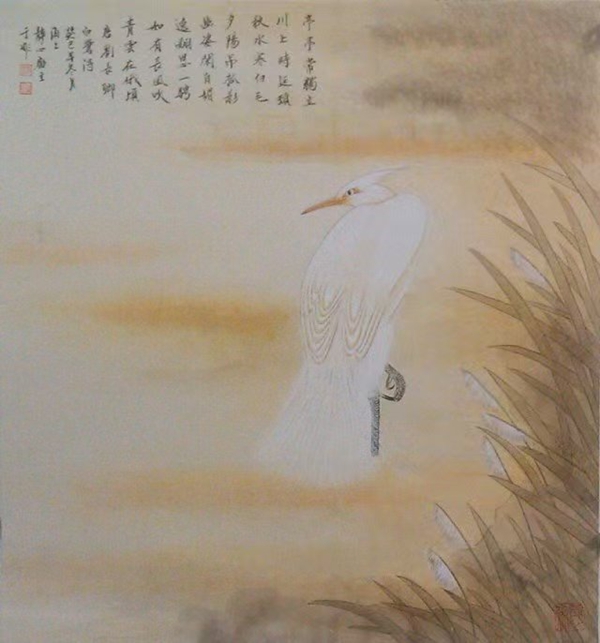 亭亭常獨立
川上時延頸
秋水寒白毛
夕陽吊孤影
幽姿閑自媚
逸翮思一騁
如有長風吹
青雲在俄頃
唐劉長卿
白鷺詩
癸巳年冬月
海上
靜心主
于